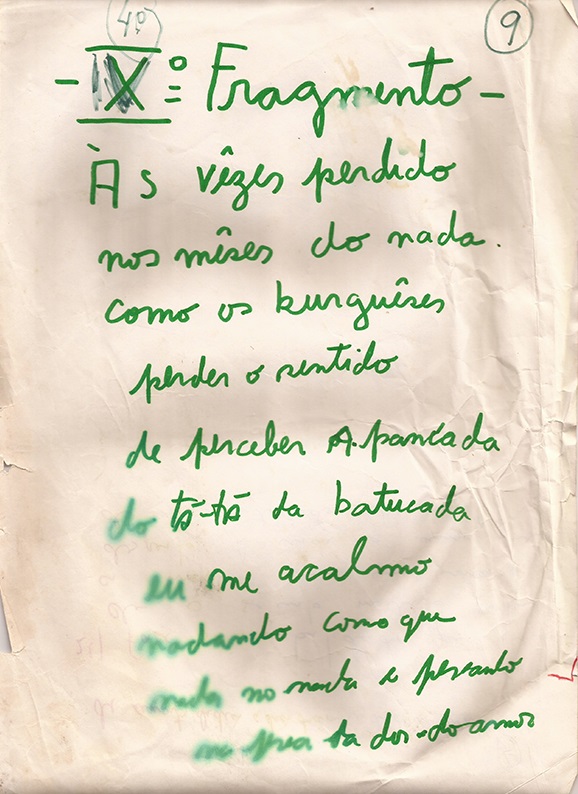 4º
9
- X º Fragmento -
Às vêzes perdido
nos mêses do nada.
como os burguêses
perder o sentido
de perceber A pancada
do tá-tá da batucada
eu me acalmo
nadando como que
nada no nada e pescando
dor-do amor